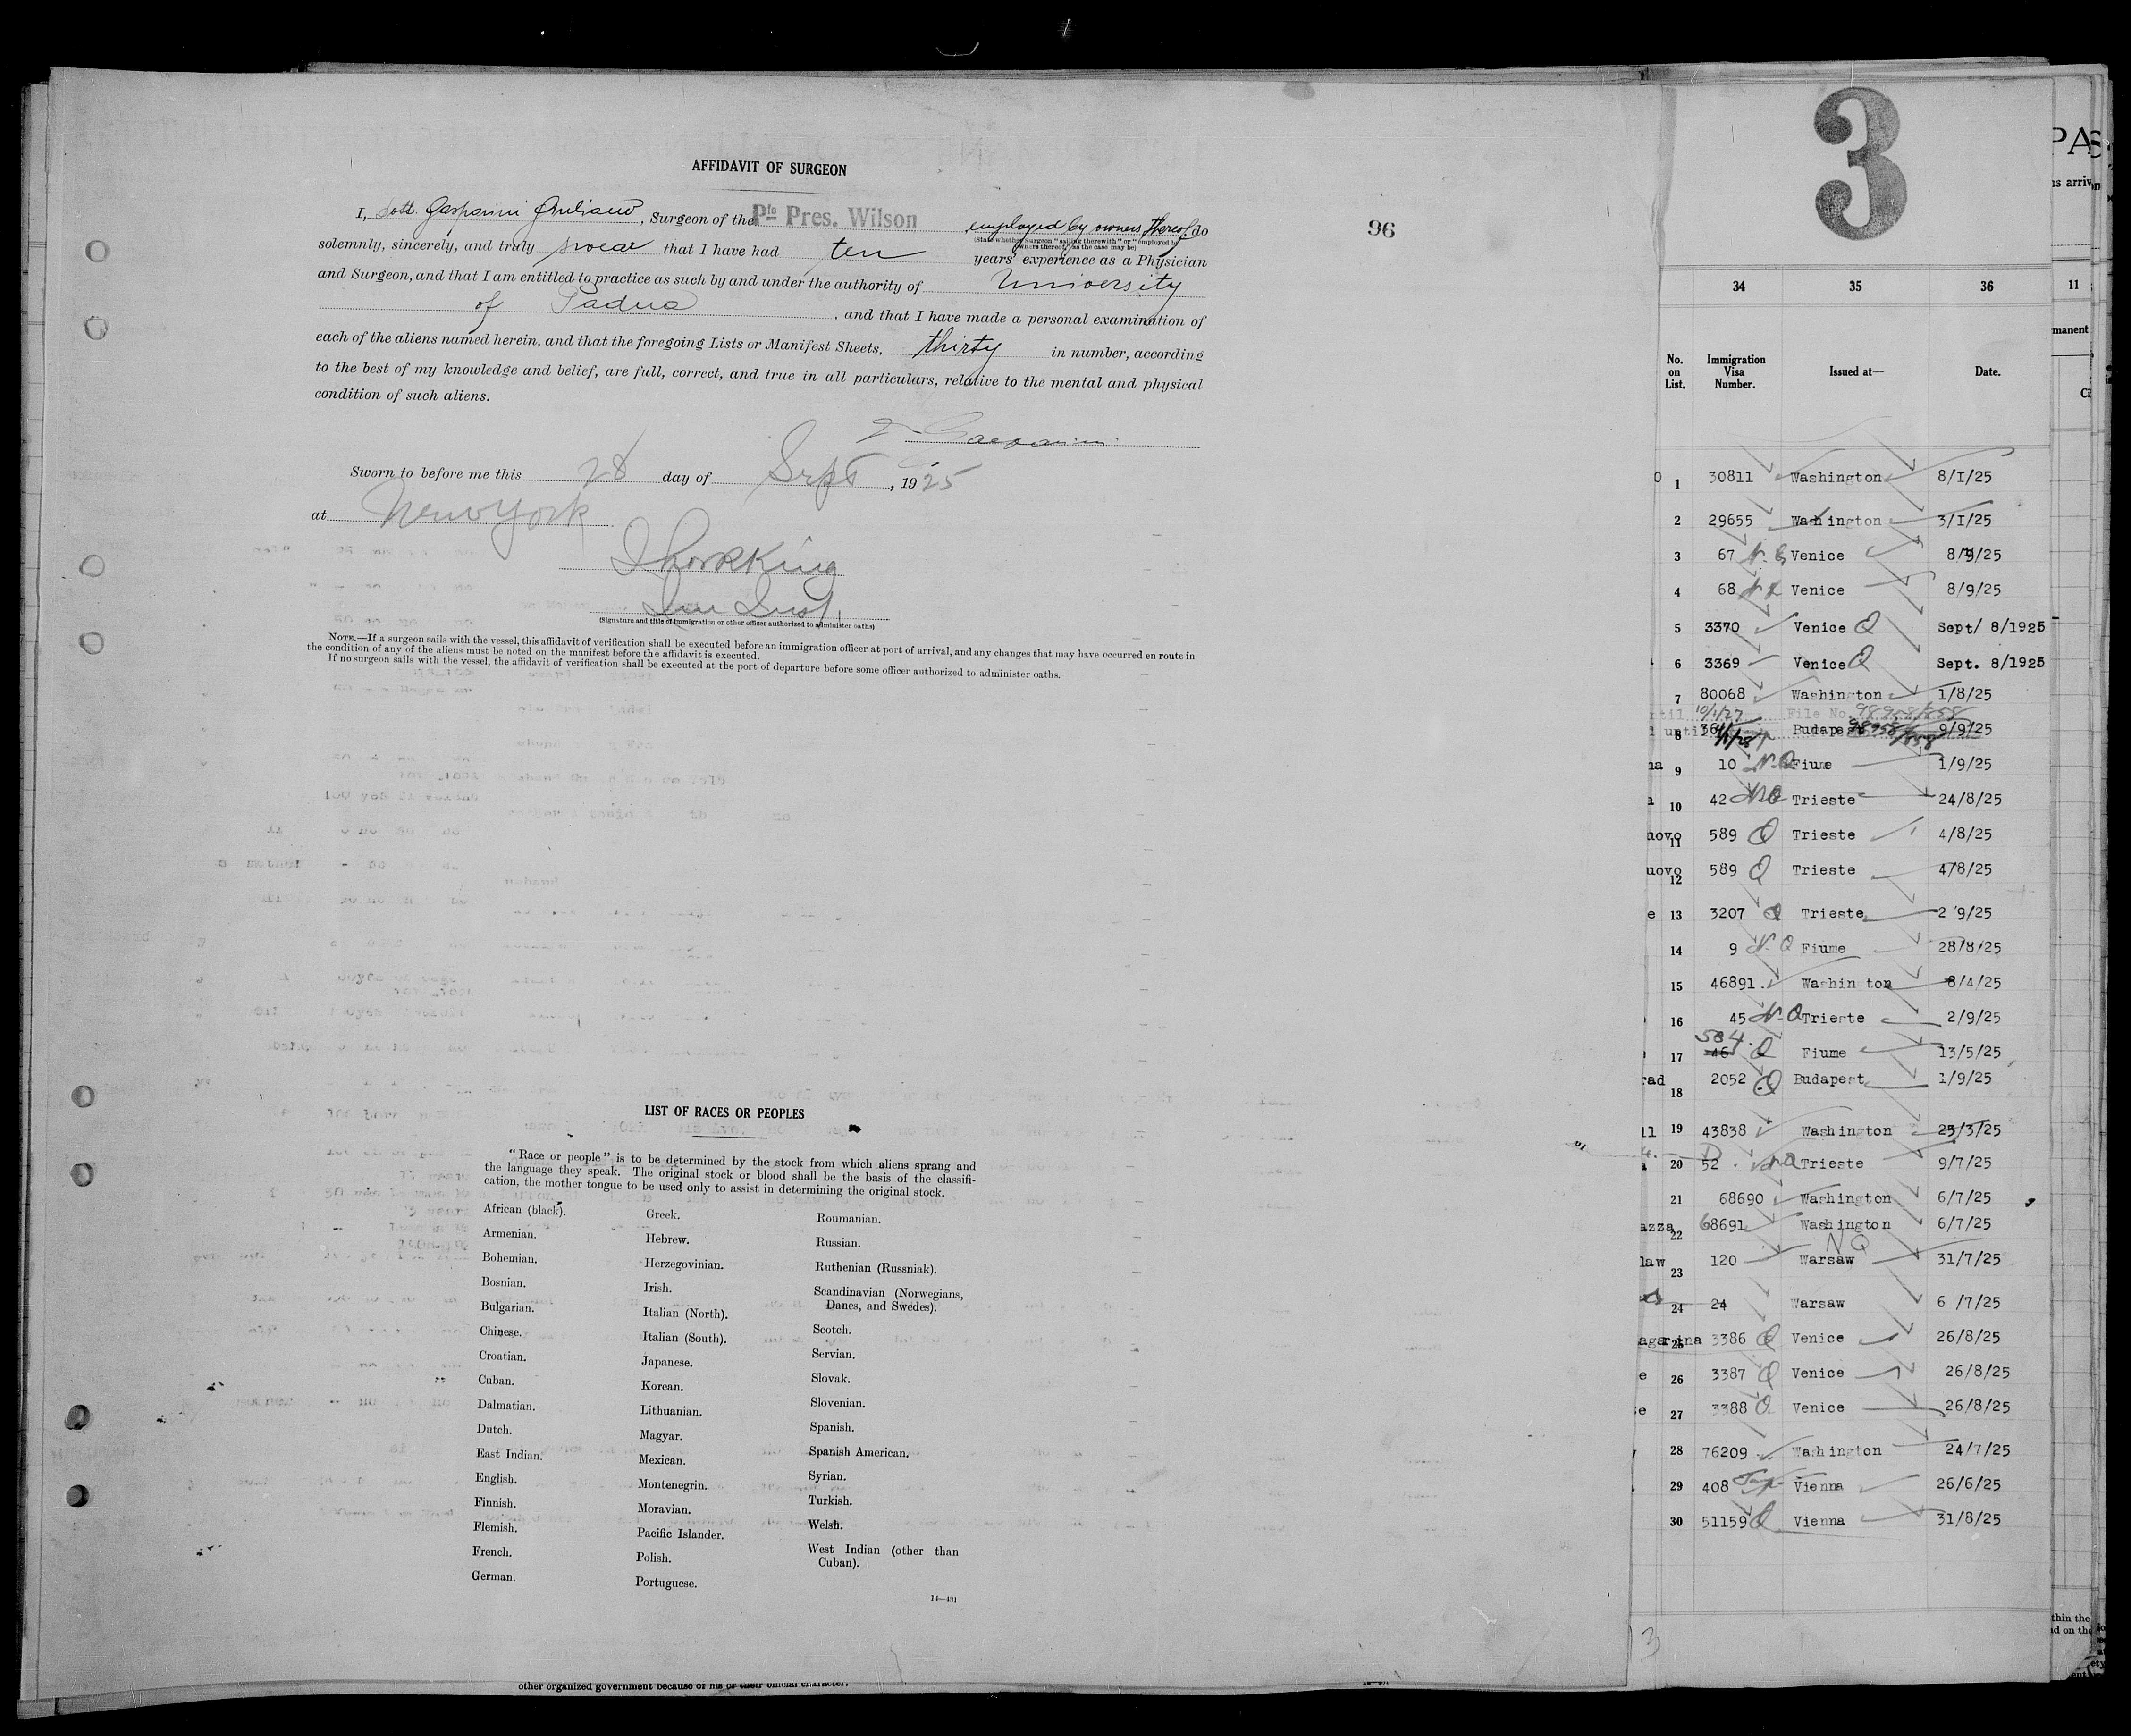 AFFIDAVIT OF SURGEON
I, Dott. Gasparini Giuliano, Surgeon of the Pfo Pres. Wilson employed by owners thereof do
(State whether Surgeon "sailing therewith" or "employed by owners thereof," as the case may be)
solemnly, sincerely, and truly swear that I have had ten years' experience as a Physician
and Surgeon, and that I am entitled to practice as such by and under the authority of University
of Padua, and that I have made a personal examination of
each of the aliens named herein, and that the foregoing Lists or Manifest Sheets, thirty in number, according
to the best of my knowledge and belief, are full, correct, and true in all particulars, relative to the mental and physical
condition of such aliens.
Gasparini
Sworn to before me this 28 day of Sept, 1925
at New York
Imm Insp.
(Signature and title of immigration or other officer authorized to administer oaths)
NOTE.—If a surgeon sails with the vessel, this affidavit of verification shall be executed before an immigration officer at port of arrival, and any changes that may have occurred en route in
the condition of any of the aliens must be noted on the manifest before the affidavit is executed.
If no surgeon sails with the vessel, the affidavit of verification shall be executed at the port of departure before some officer authorized to administer oaths.
96
LIST OF RACES OR PEOPLES
"Race or people" is to be determined by the stock from which aliens sprang and
the language they speak. The original stock or blood shall be the basis of the classifi-
cation, the mother tongue to be used only to assist in determining the original stock.
African (black).
Armenian.
Bohemian.
Bosnian.
Bulgarian.
Chinese.
Croatian.
Cuban.
Dalmatian.
Dutch.
East Indian.
English.
Finnish.
Flemish.
French.
German.
Greek.
Hebrew.
Herzegovinian.
Irish.
Italian (North).
Italian (South).
Japanese.
Korean.
Lithuanian.
Magyar.
Mexican.
Montenegrin.
Moravian.
Pacific Islander.
Polish.
Portuguese.
Roumanian.
Russian.
Ruthenian (Russniak).
Scandinavian (Norwegians,
Danes, and Swedes).
Scotch.
Servian.
Slovak.
Slovenian.
Spanish.
Spanish American.
Syrian.
Turkish.
Welsh.
West Indian (other than
Cuban).
14—431
other organized government because of his or their official character.
3
34 35 36
No. on List. Immigration Visa Number. Issued at— Date.
1 30811 Washington 8/I/25
2 29655 Washington 3/I/25
3 67 N.Q Venice 8/9/25
4 68 N.Q Venice 8/9/25
5 3370 Venice Q Sept/ 8/1925
6 3369 Venice Q Sept. 8/1925
7 80068 Washington 1/8/25
10/1/27 File No. 98958/858
8 Budapest 98958/858 9/9/25
9 10 N.Q Fiume 1/9/25
10 42 NQ Trieste 24/8/25
11 589 Q Trieste 4/8/25
12 589 Q Trieste 4/8/25
13 3207 Q Trieste 2 9/25
14 9 N.Q Fiume 28/8/25
15 46891 Washin ton 8/4/25
16 45 N.Q Trieste 2/9/25
17 584 46 Q Fiume 13/5/25
18 2052 Q Budapest 1/9/25
19 43838 Washington 25/3/25
20 52 NQ Trieste 9/7/25
21 68690 Washington 6/7/25
22 68691 Washington 6/7/25
NQ
23 120 Warsaw 31/7/25
24 24 Warsaw 6 /7/25
25 3386 Q Venice 26/8/25
26 3387 Q Venice 26/8/25
27 3388 Q Venice 26/8/25
28 76209 Washington 24/7/25
29 408 Vienna 26/6/25
30 51159 Q Vienna 31/8/25
3
PA
11